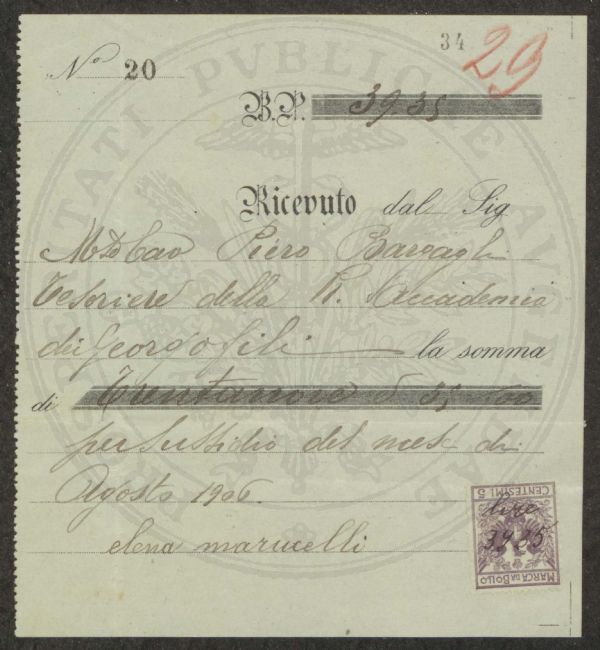 34 29
Nº 20
B.P. 39.35
Ricevuto dal Sig
Mto Cav Piero Bargagli
Tesoriere della R. Accademia
dei Georgofili la somma
di Trentanove & 35
per Sussidio del mese di
Agosto 1906.
elena marucelli
lire
39 35
CENTESIMI 5
MARCA DA BOLLO
PROSPERITATI PVBLICAE AVGENDAE